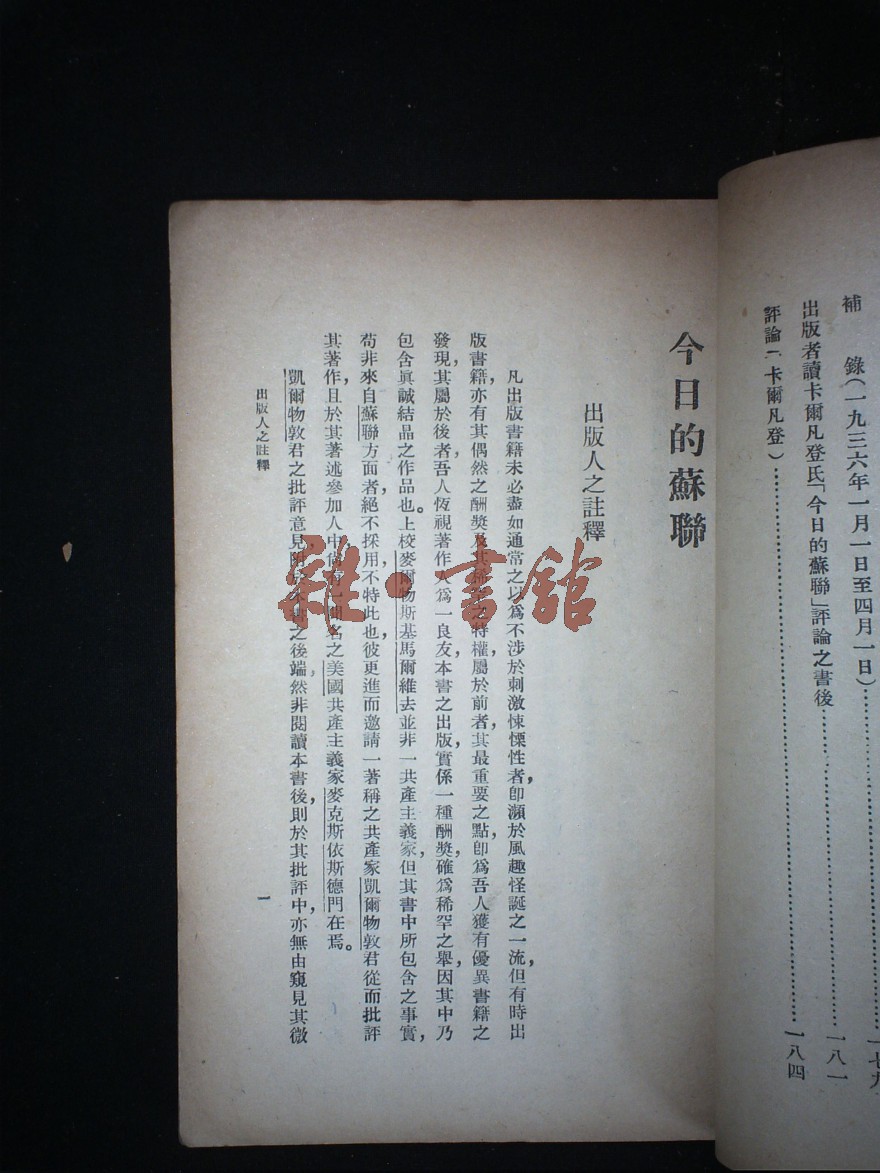 補　錄(一九三六年一月一日至四月一日)……一七九
出版者讀卡爾凡登氏「今日的蘇聯」評論之書後……一八一
評論(卡爾凡登)……一八四
今日的蘇聯
出版人之註釋
凡出版書籍未必盡如通常之以爲不涉於刺激悚慄性者，卽瀕於風趣怪誕之一流，但有時出
版書籍，亦有其偶然之酬獎及其稀之特權，屬於前者，其最重要之點，卽爲吾人獲有優異書籍之
發現，其屬於後者，吾人恆視著作人爲一良友，本書之出版，實係一種酬獎，確爲稀罕之舉，因其中乃
包含眞誠結晶之作品也。上校麥爾物斯基馬爾維去並非一共產主義家，但其書中所包含之事實，
苟非來自蘇聯方面者，絕不採用，不特此也，彼更進而邀請一著稱之共產家凱爾物敦君從而批評
其著作，且於其著述參加人中尙有一名之美國共產主義家麥克斯依斯德門在焉。
凱爾物敦君之批評意見，附本書之後端，然非閱讀本書後，則於其批評中，亦無由窺見其微
出版人之註釋
一
雜·書館